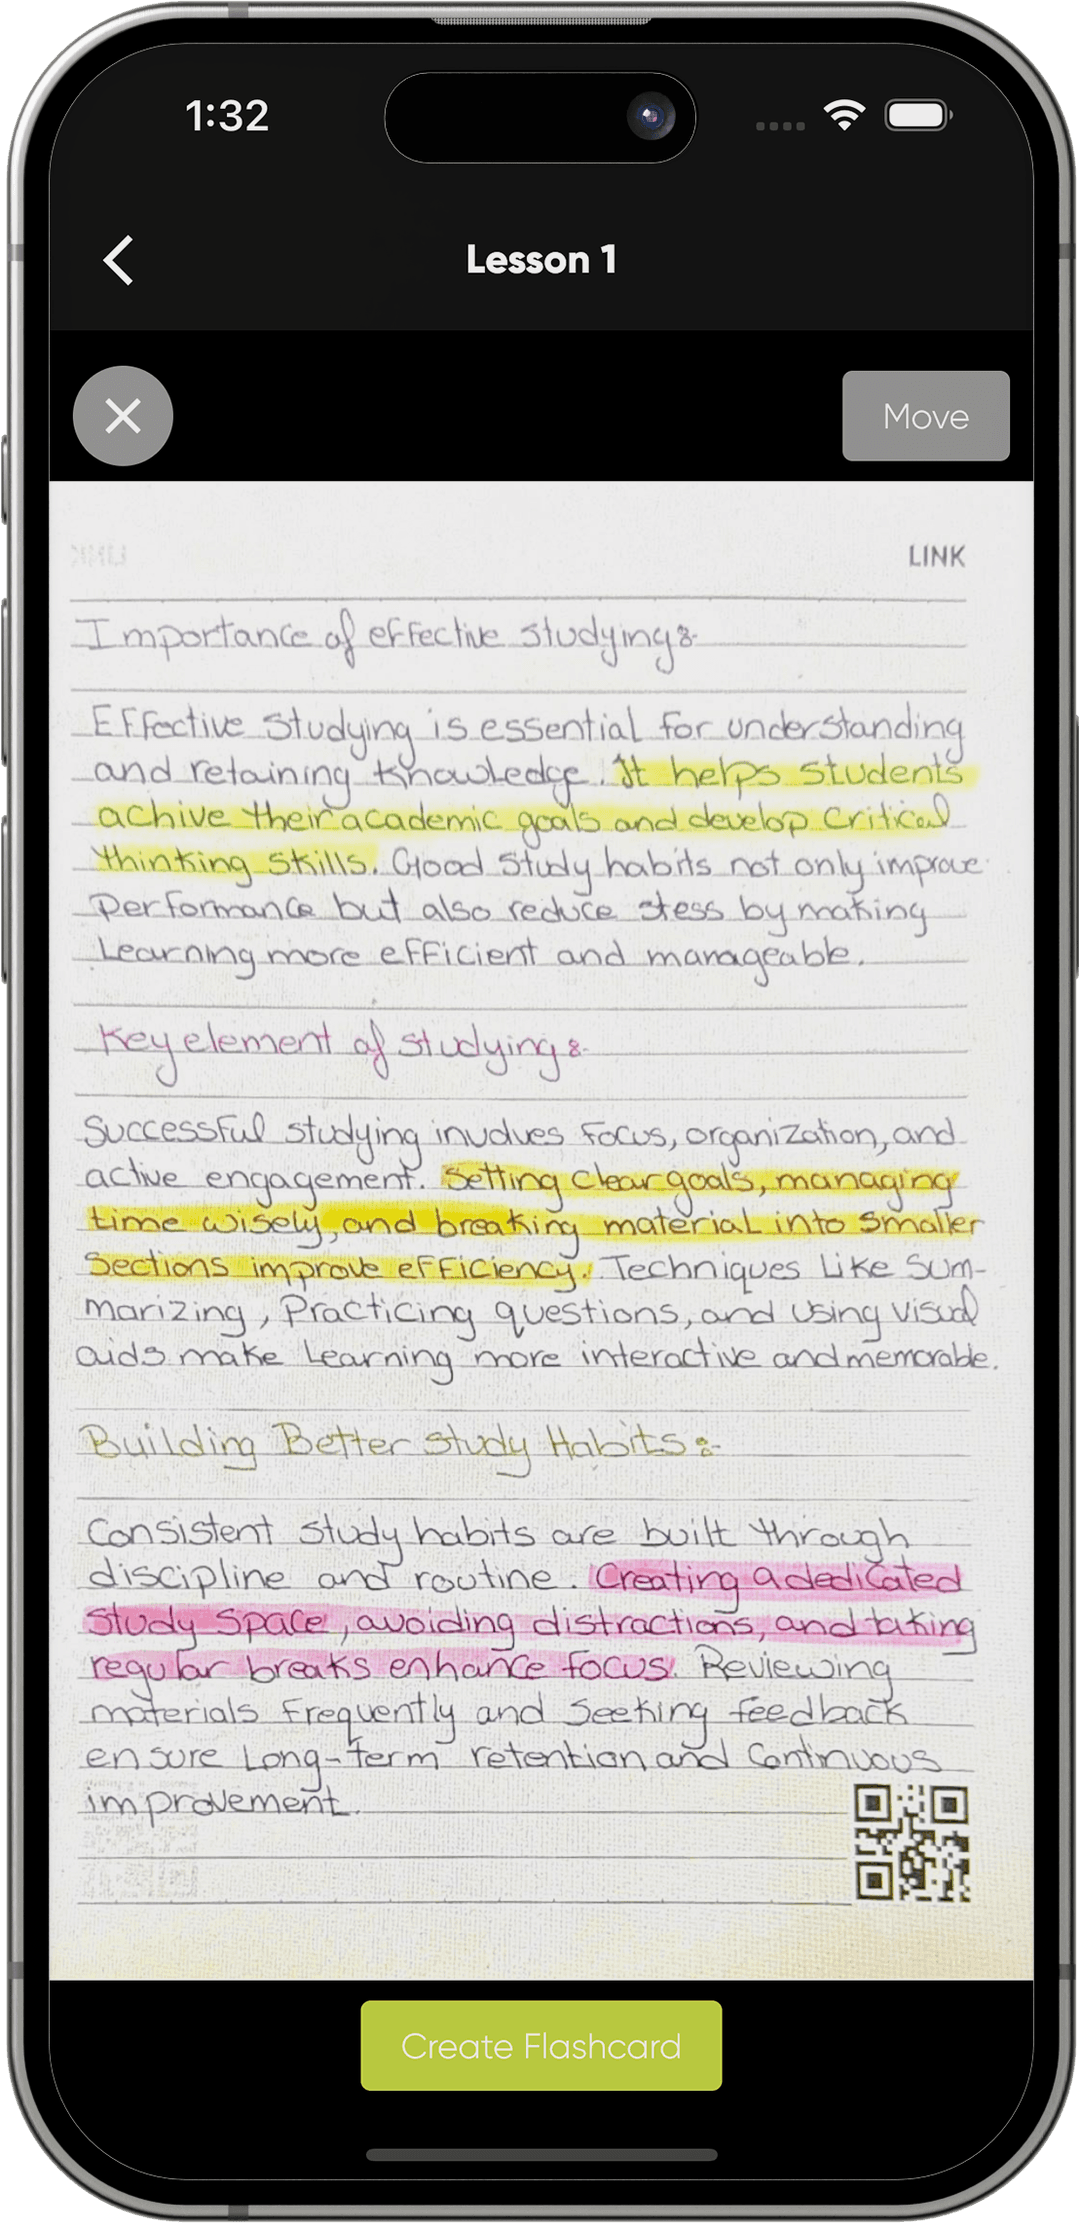 1:32
Lesson 1
Move
LINK
Importance of effective studying:-
Effective studying is essential for understanding
and retaining knowledge. It helps students
achive their academic goals and develop critical
thinking skills. Good study habits not only improve
performance but also reduce stess by making
Learning more efficient and manageable.
Key element of studying:-
Successful studying involves focus, organization, and
active engagement. Setting clear goals, managing
time wisely, and breaking material into smaller
sections improve efficiency. Techniques Like Sum-
marizing, Practicing questions, and using visual
aids make Learning more interactive and memorable.
Building Better Study Habits:-
Consistent study habits are built through
discipline and routine. Creating a dedicated
study space, avoiding distractions, and taking
regular breaks enhance focus. Reviewing
materials frequently and seeking feedback
ensure Long-term retention and continuous
improvement.
Create Flashcard